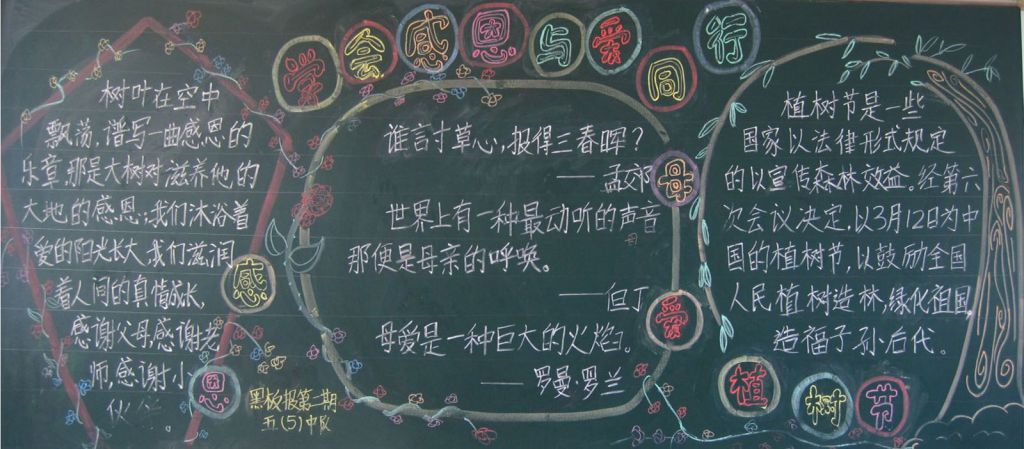 学会感恩与爱同行
树叶在空中
飘荡,谱写一曲感恩的
乐章,那是大树对滋养他的
大地的感恩;我们沐浴着
爱的阳光长大,我们滋润
着人间的真情成长,
感谢父母感谢老
师,感谢小
伙
感
恩
黑板报第一期
五(5)中队
谁言寸草心,报得三春晖?
——孟郊
世界上有一种最动听的声音
那便是母亲的呼唤。
——但丁
母爱是一种巨大的火焰。
——罗曼·罗兰
母
爱
植树节是一些
国家以法律形式规定
的以宣传森林效益。经第六
次会议决定,以3月12日为中
国的植树节,以鼓励全国
人民植树造林,绿化祖国,
造福子孙后代。
植树节